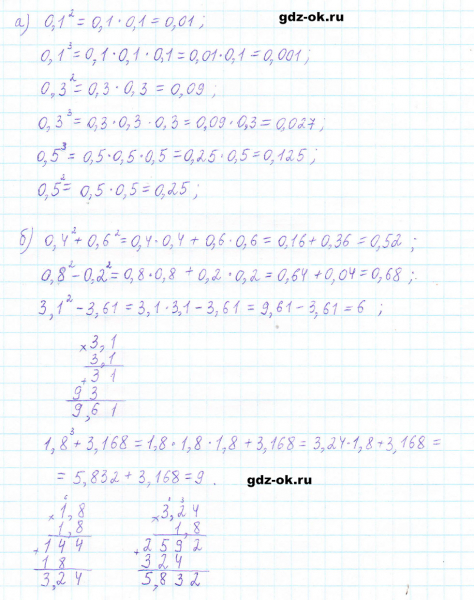 gdz-ok.ru
а) 0,1² = 0,1 · 0,1 = 0,01 ;
0,1³ = 0,1 · 0,1 · 0,1 = 0,01 · 0,1 = 0,001 ;
0,3² = 0,3 · 0,3 = 0,09 ;
0,3³ = 0,3 · 0,3 · 0,3 = 0,09 · 0,3 = 0,027 ;
0,5³ = 0,5 · 0,5 · 0,5 = 0,25 · 0,5 = 0,125 ;
0,5² = 0,5 · 0,5 = 0,25 ;
б) 0,4² + 0,6² = 0,4 · 0,4 + 0,6 · 0,6 = 0,16 + 0,36 = 0,52 ;
0,8² - 0,2² = 0,8 · 0,8 + 0,2 · 0,2 = 0,64 + 0,04 = 0,68 ;
3,1² - 3,61 = 3,1 · 3,1 - 3,61 = 9,61 - 3,61 = 6 ;
× 3,1
3,1
+ 3 1
9 3
9,6 1
1,8³ + 3,168 = 1,8 · 1,8 · 1,8 + 3,168 = 3,24 · 1,8 + 3,168 =
= 5,832 + 3,168 = 9 .
gdz-ok.ru
× 1,8
1,8
+ 1 4 4
1 8
3,2 4
× 3,2 4
1,8
+ 2 5 9 2
3 2 4
5,8 3 2